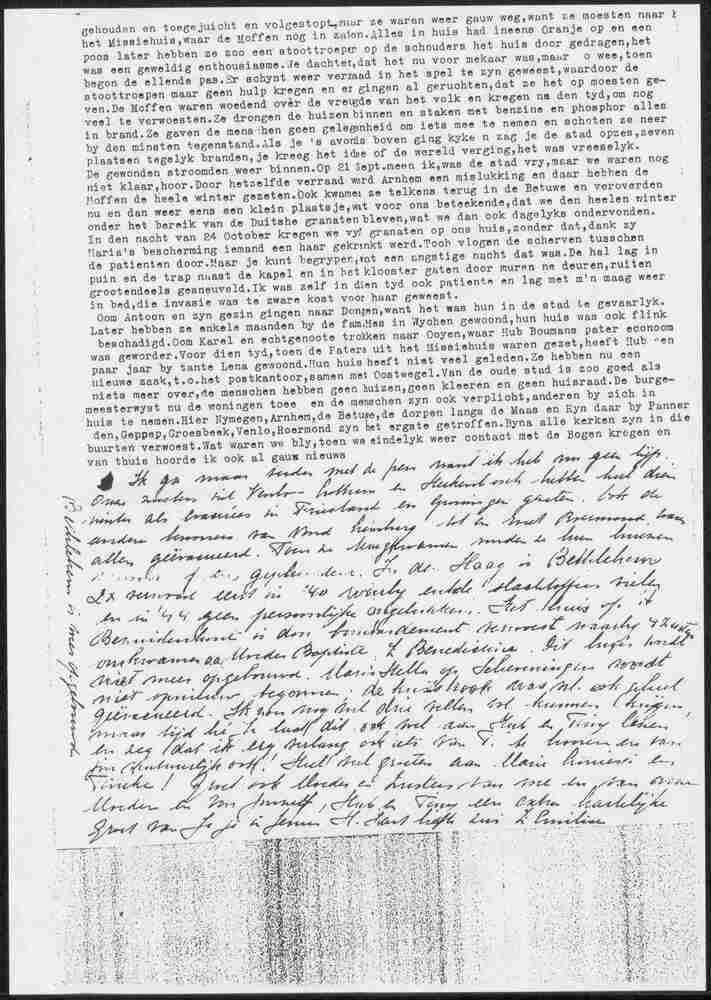 gehouden en toegejuicht en volgestopt,maar ze waren weer gauw weg,want ze moesten naar
het Missiehuis,waar de Moffen nog in zaten.Alles in huis had ineens Oranje op en een
poos later hebben ze zoo een stoottroeper op de schouders het huis door gedragen,het
was een geweldig enthousiasme.We dachten,dat het nu voor mekaar was,maar o wee,toen
begon de ellende pas.Er schynt weer verraad in het spel te zyn geweest,waardoor de
stoottroepen maar geen hulp kregen en er gingen al geruchten,dat ze het op moesten ge-
ven.De Moffen waren woedend over de vreugde van het volk en kregen na den tyd,om nog
veel te verwoesten.Ze drongen de huizen binnen en staken met benzine en phosphor alles
in brand.Ze gaven de menschen geen gelegenheid om iets mee te nemen en schoten ze neer
by den minsten tegenstand.Als je 's avonds boven ging kyken zag je de stad opzes,zeven
plaatsen tegelyk branden,je kreeg het idee of de wereld verging,het was vreeselyk.
De gewonden stroomden weer binnen.Op 21 Sept.meen ik,was de stad vry,maar we waren nog
niet klaar,hoor.Door hetzelfde verraad werd Arnhem een mislukking en daar hebben de
Moffen de heele winter gezeten.Ook kwamen ze telkens terug in de Betuwe en veroverden
nu en dan weer eens een klein plaatsje,wat voor ons beteekende,dat we den heelen winter
onder het bereik van de Duitshe granaten bleven,wat we dan ook dagelyks ondervonden.
In den nacht van 24 October kregen we vyf granaten op ons huis,zonder dat,dank zy
Maria's bescherming iemand een haar gekrenkt werd.Toch vlogen de scherven tusschen
de patienten door.Maar je kunt begrypen,wat een angstige nacht dat was.De hal lag in
puin en de trap naast de kapel en in het klooster gaten door muren ne deuren,ruiten
grootendeels gesneuveld.Ik was zelf in dien tyd ook patiente en lag met m'n maag weer
in bed,die invasie was te zware kost voor haar geweest.
Oom Antoon en zyn gezin gingen naar Dongen,want het was hun in de stad te gevaarlyk.
Later hebben ze enkele maanden by de fam.Hes in Wychen gewoond,hun huis was ook flink
beschadigd.Oom Karel en echtgenoote trokken naar Ooyen,waar Hub Boumans pater econoom
was geworden.Voor dien tyd,toen de Paters uit het Missiehuis waren gezet,heeft Hub een
paar jaar by tante Lena gewoond.Hun huis heeft niet veel geleden.Ze hebben nu een
nieuwe zaak,t.o.het postkantoor,samen met Oostwegel.Van de oude stad is zoo goed als
niets meer over,de menschen hebben geen huizen,geen kleeren en geen huisraad.De burge-
meesterwyst nu de woningen toe en de menschen zyn ook verplicht,anderen by zich in
huis te nemen.Hier Nymegen,Arnhem,de Betuwe,de dorpen langs de Maas en Ryn daar by Panner
den,Gennep,Groesbeek,Venlo,Roermond zyn het ergste getroffen.Byna alle kerken zyn in die
buurten verwoest.Wat waren we bly,toen we eindelyk weer contact met de Bogen kregen en
van thuis hoorde ik ook al gauw nieuws
Ik ga maar verder met de pen want ik heb nu geen lijf.
Onze zusters uit Venlo en hebben heel dien
winter als evacuées in Friesland en Groningen gezeten. Ook de
andere bewoners van Noord Limburg tot en met Roermond waren
allen geëvacueerd. Toen ze
In den Haag is Bethlehem
2x verwoest eerst in '40
en in '44 geen persoonlijke ongelukken. Het huis op 't
Bezuidenhout is door bombardement verwoest waarby 4 zusters
omkwamen oa Moeder Baptiste, Z Benedictine. Dit huis wordt
niet meer opgebouwd. Maris Stella op Scheveningen wordt
niet opnieuw begonnen, was nl. ook geheel
geëvacueerd. Ik zou nog wel drie vellen vol kunnen
maar tijd laat dit ook wel aan Hub en Tiny lezen
en zeg dat ik erg verlang ook iets van T. te hooren en van
jou natuurlijk ook! Heel veel groeten aan Marie en
Tineke! Groet ook Moeder en Zusters van me en van onze
Moeder en Hub en Tiny een extra hartelijke
groet van Je je in Jezus H. Hart liefh zus Z Emiline
Bethlehem is weer opgebouwd